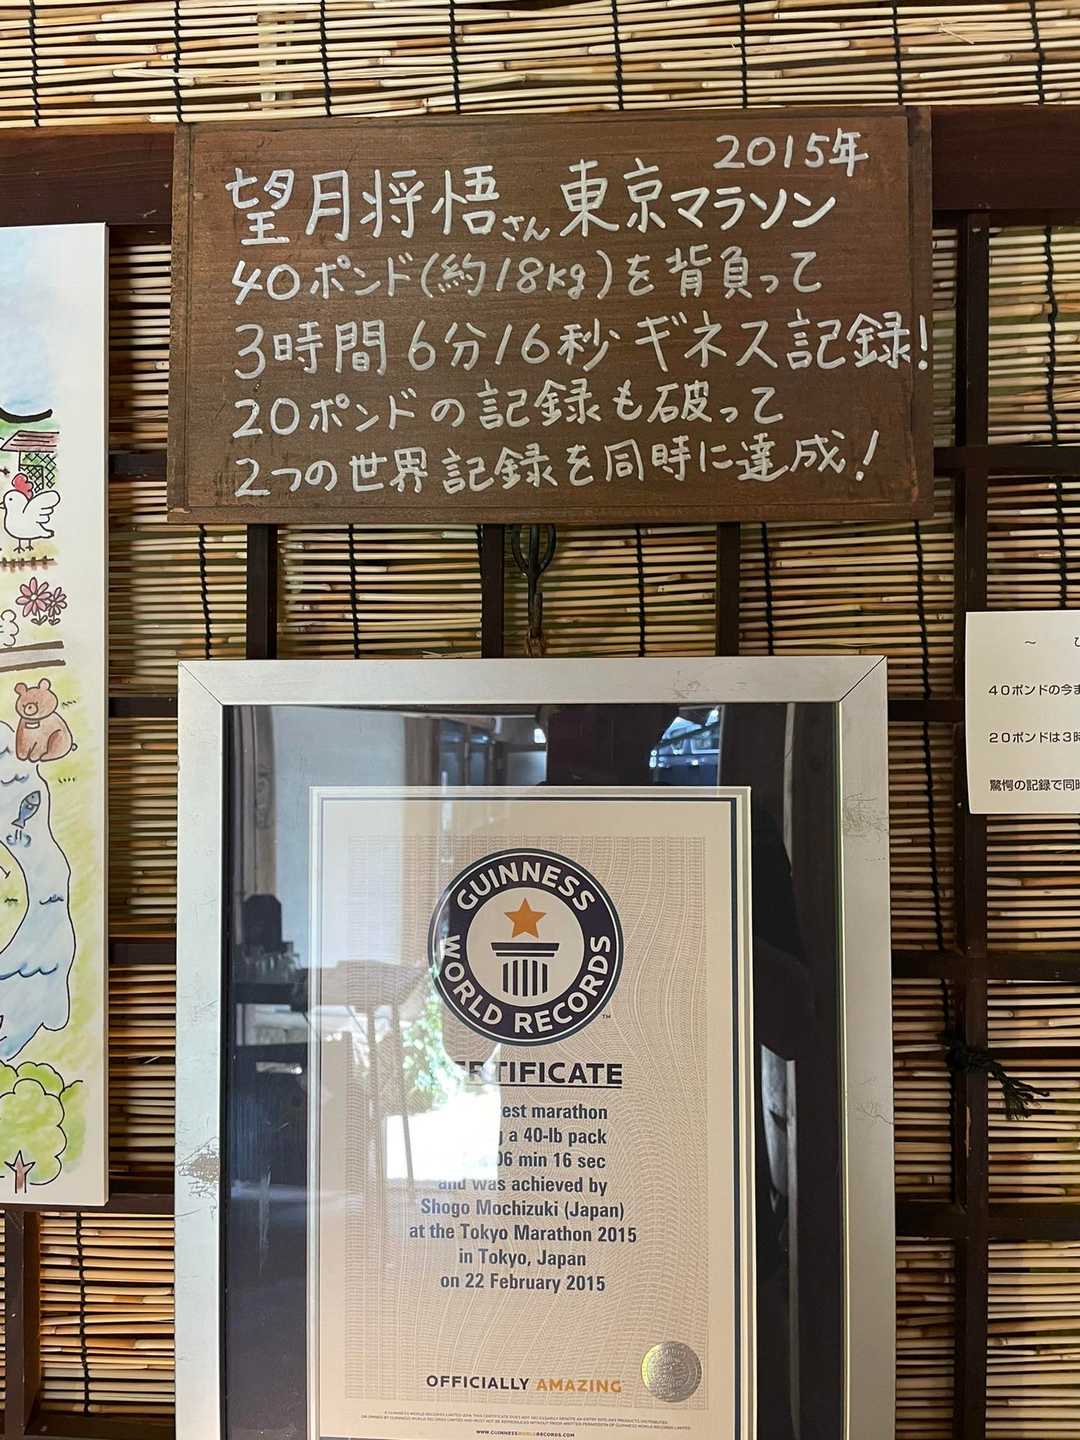 2015年
望月将悟さん東京マラソン
40ポンド(約18kg)を背負って
3時間6分16秒ギネス記録!
20ポンドの記録も破って
2つの世界記録を同時に達成!
~
40ポンドの今ま
20ポンドは3時
驚愕の記録で同時
GUINNESS WORLD RECORDS
™
RTIFICATE
est marathon
a 40-lb pack
06 min 16 sec
and was achieved by
Shogo Mochizuki (Japan)
at the Tokyo Marathon 2015
in Tokyo, Japan
on 22 February 2015
OFFICIALLY AMAZING
WWW.GUINNESSWORLDRECORDS.COM